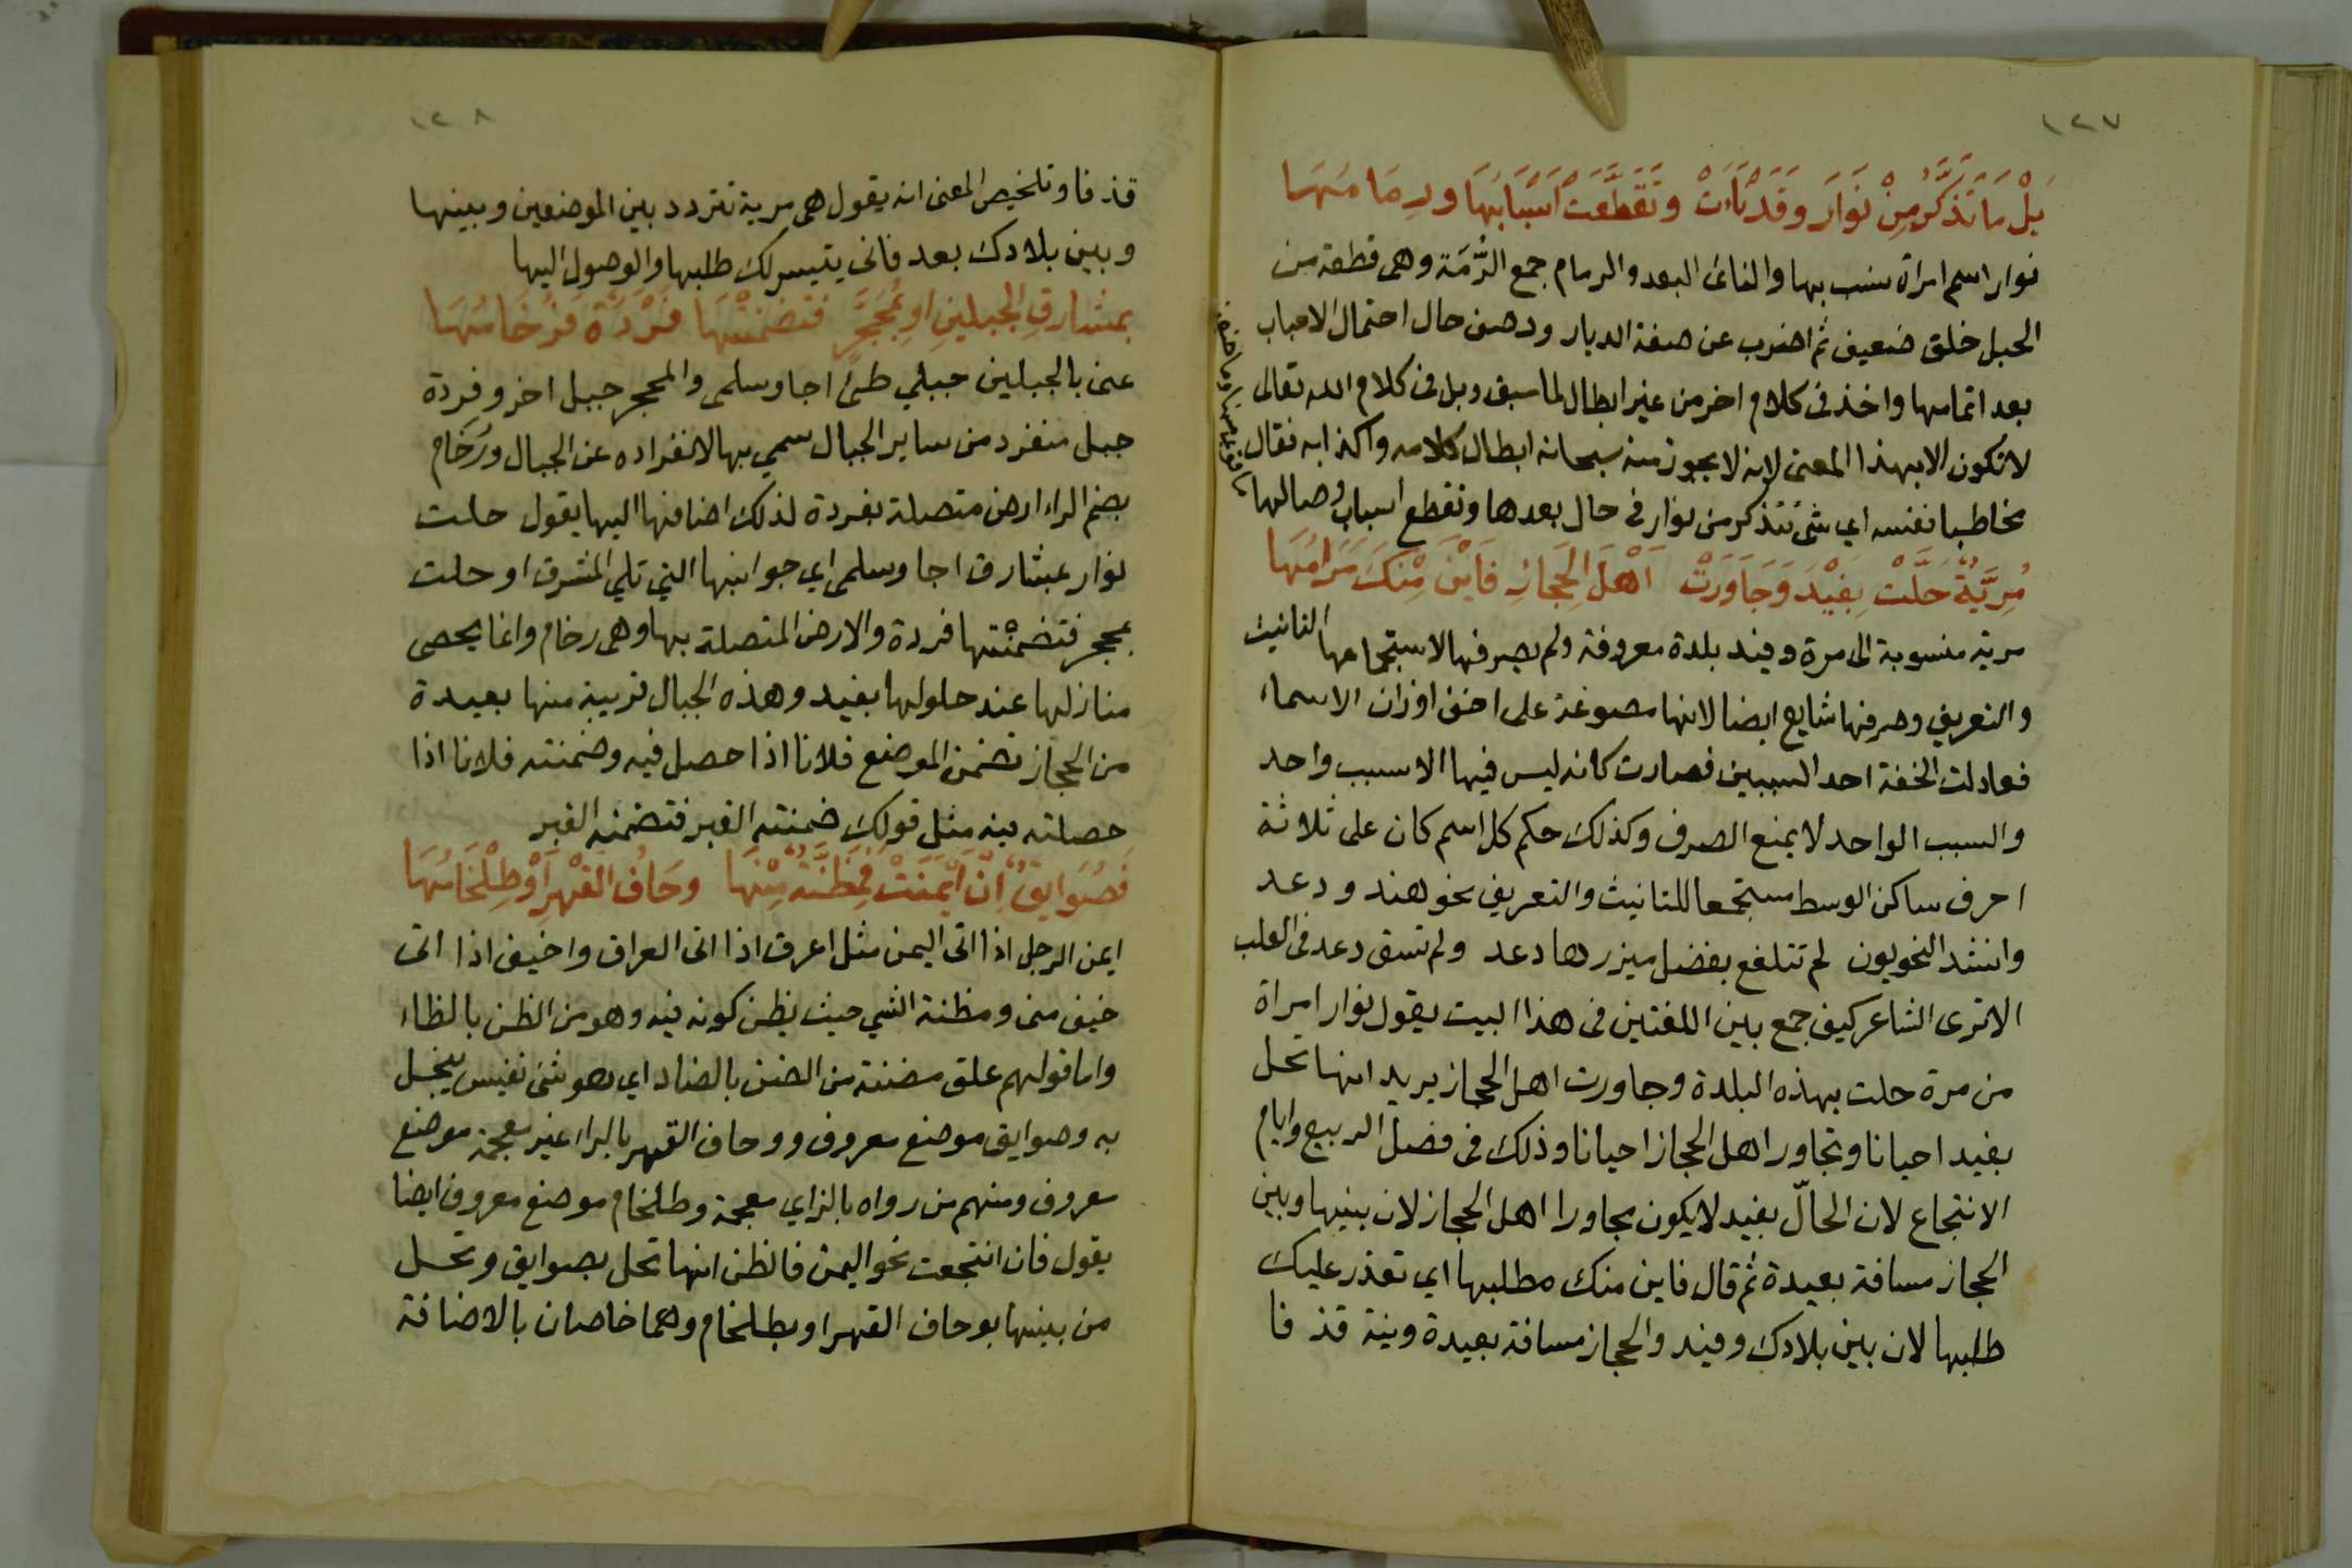 ١٢٧
بَلْ مَا تَذَكَّرُ مِنْ نَوَارَ وَقَدْ نَأَتْ وَتَقَطَّعَتْ اَسْبَابُهَا ورِمَامُهَا
نوار اسم امراة ينسب بها والنائ البعد والرمام جمع الرُّمَة وهى قطعة من
الحبل خلق ضعيف ثم اضرب عن صفة الديار ووصف حال احتمال الاحباب
بعد اتمامها واخذ فى كلام اخر من غير ابطال لما سبق وبل فى كلام الله تعالى
لا تكون الا بهذا المعنى لانه لا يجوز منه سبحانه ابطال كلامه واكذابه فقال
مخاطبا نفسه اي شئ تتذكر من نوار فى حال بعدها وتقطع اسباب وصالها
مُرِيَّةٌ حَلَّتْ بِفَيْدَ وَجَاوَرَتْ اَهْلَ الحِجَازِ فَاَيْنَ مِنْكَ مَرَامُهَا
مرية منسوبة الى مرة وفيد بلدة معروفة ولم يصرفها لاستجماعها التانيث
والتعريف وصرفها شايع ايضا لانها مصوغة على اخف اوزان الاسماء
فعادلت الخفة احد السببين فصارت كانه ليس فيها الا سبب واحد
والسبب الواحد لا يمنع الصرف وكذلك حكم كل اسم كان على ثلاثة
احرف ساكن الوسط مستجمعا للتانيث والتعريف نحو هند ودعد
وانشد النحويون لم تتلفع بفضل ميزرها دعد ولم تسق دعد فى العلب
الا ترى الشاعر كيف جمع بين اللغتين فى هذا البيت يقول نوار امراة
من مرة حلت بهذه البلدة وجاورت اهل الحجاز يريد انها تحل
بفيد احيانا وتجاور اهل الحجاز احيانا وذلك فى فصل الربيع وايام
الانتجاع لان الحالّ بفيد لا يكون مجاورا اهل الحجاز لان بينها وبين
الحجاز مسافة بعيدة ثم قال فاين منك مطلبها اي تعذر عليك
طلبها لان بين بلادك وفيد والحجاز مسافة بعيدة وينة قذفا
١٢٨
قذفا وتلخيص المعنى انه يقول هى مرية تتردد بين الموضعين وبينها
وبين بلادك بعد فانى يتيسر لك طلبها والوصول اليها
بمشارق الجبلين او بمُحَجَّرٍ فتضمنتْهَا فَرْدَةٌ فَرُخَامُهَا
عنى بالجبلين جبلي طئ اجا وسلمى والمحجر جبل اخر وفردة
جبل منفرد من ساير الجبال سمي بها لانفراده عن الجبال ورُخَام
بضم الراء ارض متصلة بفردة لذلك اضافها اليها يقول حلت
نوار بمشارق اجا وسلمى اي جوانبها التي تلي المشرق او حلت
بمحجر فتضمنتها فردة والارض المتصلة بها وهى رخام وانما يحصى
منازلها عند حلولها بفيد وهذه الجبال قريبة منها بعيدة
من الحجاز تضمن الموضع فلانا اذا حصل فيه وضمنته فلانا اذا
حصلته فيه مثل قولك ضمنته القبر فتضمنه القبر
فَصُوَايِقٌ اِنْ اَيْمَنَتْ فَمِظَنَّةٌ مِنْهَا وحَافُ القَهْرِ اَوْ طِلْخَامُهَا
ايمن الرجل اذا اتى اليمن مثل اعرق اذا اتى العراق واخيف اذا اتى
خيف منى ومظنة الشي حيث يظن كونه فيه وهو من الظن بالظاء
واما قولهم علق مضنة من الضن بالضاد اي هو شئ نفيس يبخل
به وصوايق موضع معروف ووحاف القهر بالراء غير معجمة موضع
معروف ومنهم من رواه بالزاي معجمة وطلخام موضع معروف ايضا
يقول فان انتجعت نحو اليمن فالظن انها تحل بصوايق وتحل
من بينها بوحاف القهر او بطلخام وهما خاصان بالاضافة